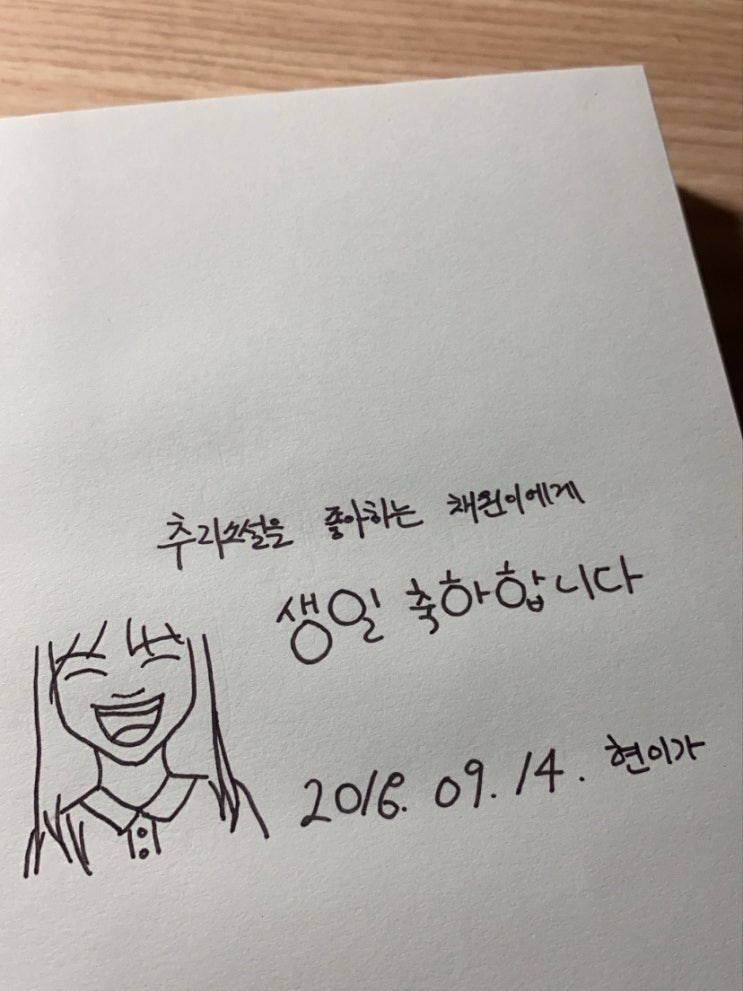 추리소설을 좋아하는 채원이에게
생일 축하합니다
2016. 09. 14. 현이가